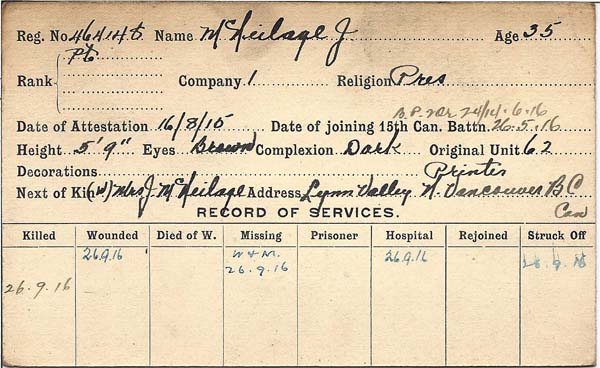 Reg. No. 464145 Name McNeilage J Age 35
Pt
Rank Company 1 Religion Pres
24/14.6.16
Date of Attestation 16/8/15 Date of joining 15th Can. Battn. 26.5.16
Height 5'9" Eyes Brown Complexion Dark Original Unit 62
Decorations Printer
Next of Kin (W) Mrs J. McNeilage Address, Lynn Valley N. Vancouver BC
RECORD OF SERVICES. Can
Killed Wounded Died of W. Missing Prisoner Hospital Rejoined Struck Off
26.9.16 W & M. 26.9.16 26.9.16
26.9.16
26.9.16